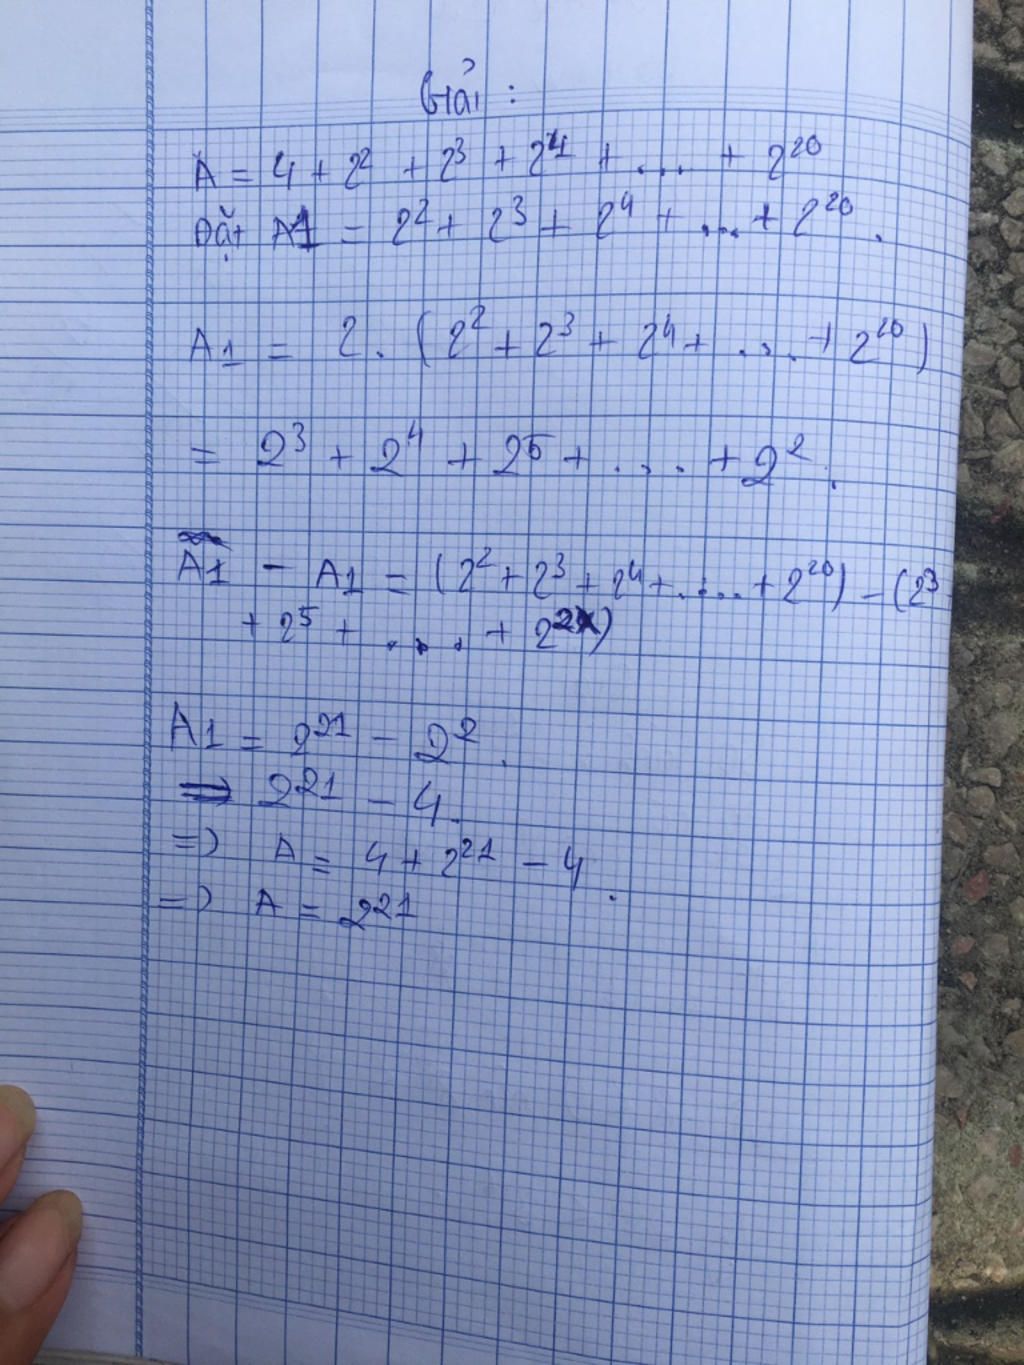 Giải :
A = 4 + 2² + 2³ + 2⁴ + ... + 2²⁰
Đặt A1 = 2² + 2³ + 2⁴ + ... + 2²⁰.
A₁ = 2 . (2² + 2³ + 2⁴ + .... + 2²⁰)
= 2³ + 2⁴ + 2⁵ + .... + 2².
A1 - A1 = (2² + 2³ + 2⁴ + .... + 2²⁰) - (2³
+ 2⁵ + .... + 2²¹)
A1 = 2²¹ - 2².
=> 2²¹ - 4.
=> A = 4 + 2²¹ - 4.
=> A = 2²¹